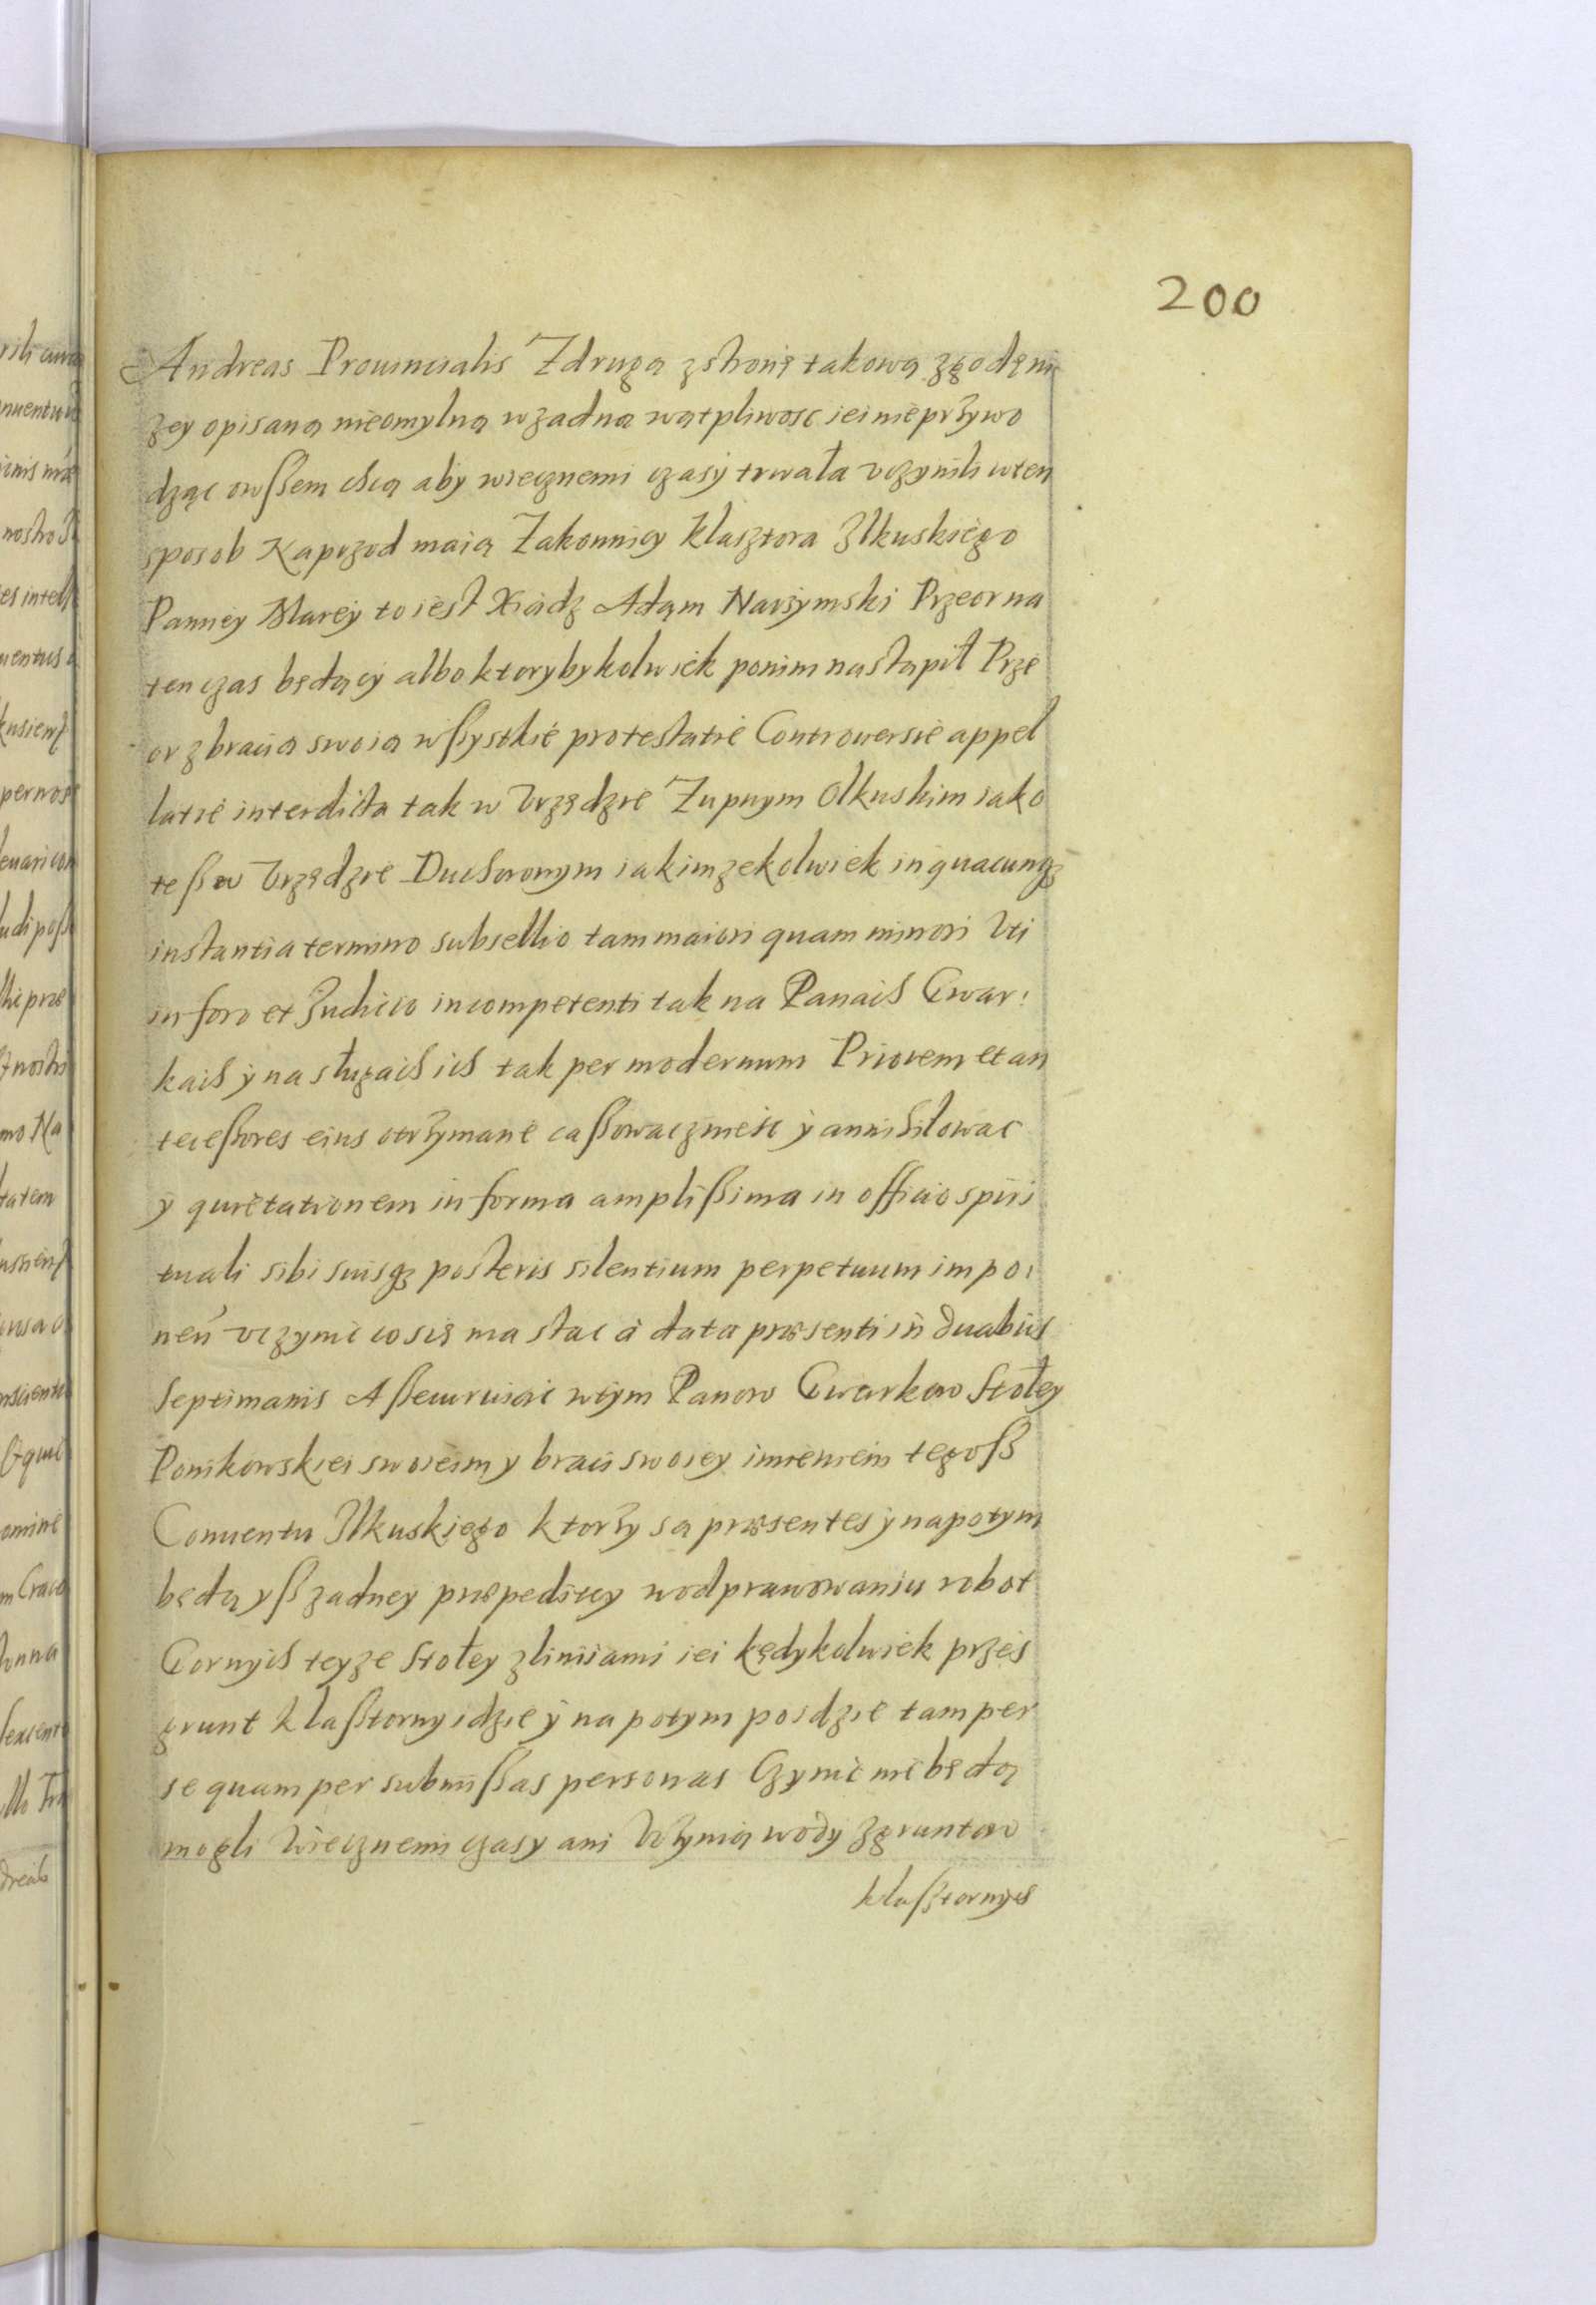 200
Andreas Prouincialis Zdrugą zstronę takową zgodą ni
zey opisaną nieomylną wzadną wątpliwosc iei nieprzywo
dząc owßem chcą aby wiecznemi czasy trwała vczynili wten
sposob Naprzod maią Zakonnicy Klasztora Ilkuskiego
Panney Mariey to iest Xiądz Adąm Narzymski Przeor na
ten czas będący albo ktorybykolwiek ponim nastąpił Prze
or zbracią swoią wßystkie protestatie Controuersie appel
latie interdicta tak w Vrzędzie Zupnym Olkuskim iako
teß w Vrzędzie Duchownym iakimzekolwiek in quacunqz
instantia termino subsellio tam maiori quam minori Vti
in foro et Iudicio incompetenti tak na Panach Gwar:
kach y na sługach ich tak per modernum Priorem et an
tecessores eius otrzymane cassowac zniesc y annihilowac
y quietationem in forma amplissima in officio spiri
tuali sibi suisqz posteris silentium perpetuum impo:
nen vczynic co się ma stac à data præsenti in duabus
septimanis Assecuruiąc wtym Panow Gwarkow Stołey
Ponikowskiei swoieim y braci swoiey imieniem tegoß
Conuentu Ilkuskiego ktorzy są præsentes y napotym
będą yß zadney præpeditiey wodprawowaniu robot
Gornych teyze Stoły zliniiami iei kędykolwiek przes
grunt Klaßtorny idzie y na potym poidzie tam per
se quam per submissas personas Czynic nie będą
mogli Wiecznemi czasy ani Wzymą wody zgruntow
klaßtornych
rili cura
nostro
nostri
tatem
omine